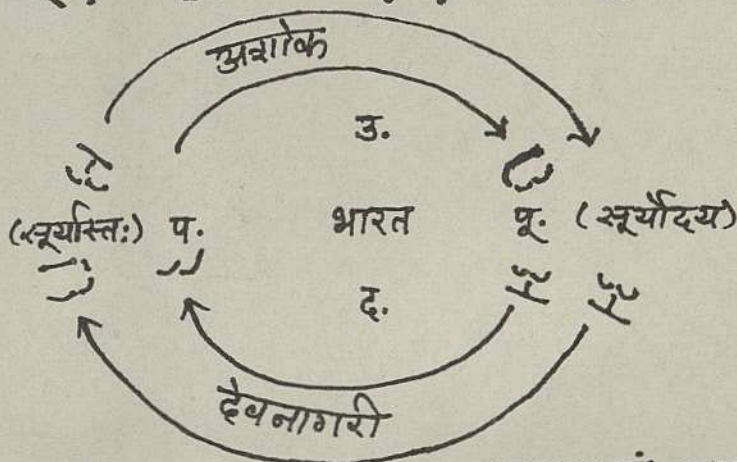 अशोक
उ.
(सूर्यास्तः) प. भारत पू. (सूर्योदय)
द.
देवनागरी